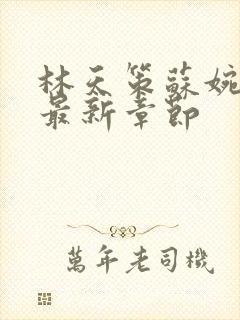 林天策蘇婉
最新章節
萬年老司機